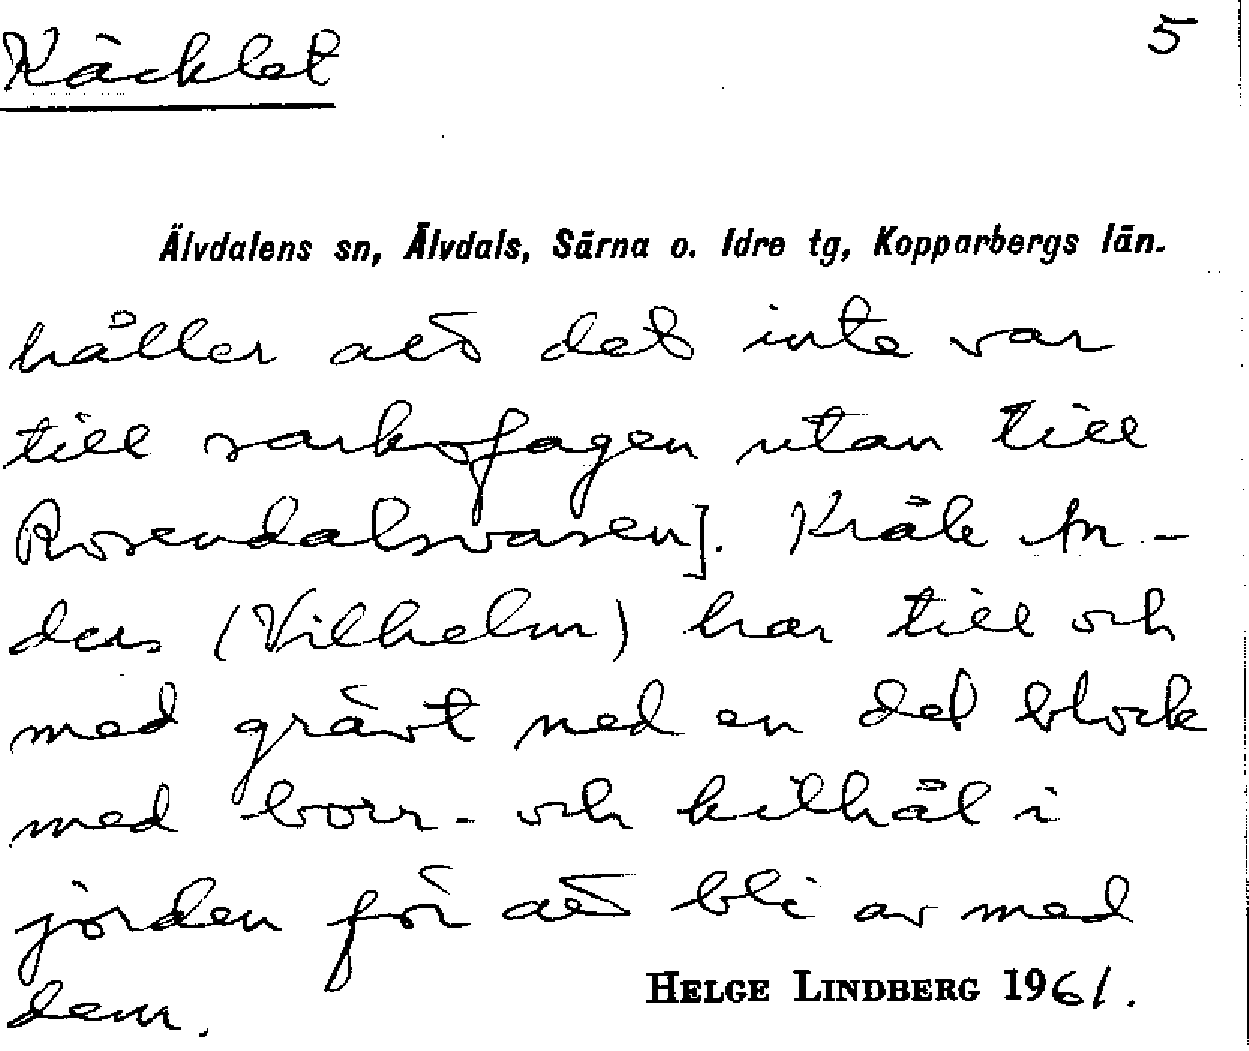 Käcklet
5
Älvdalens sn, Älvdals, Särna o. Idre tg, Kopparbergs län.
håller att det inte var
till sarkofagen utan till
Rosendalsvasen]. Kråk An-
ders (Vilhelm) har till och
med grävt ned en del block
med borr- och kilhål i
jorden för att bli av med
dem.
HELGE LINDBERG 1961.